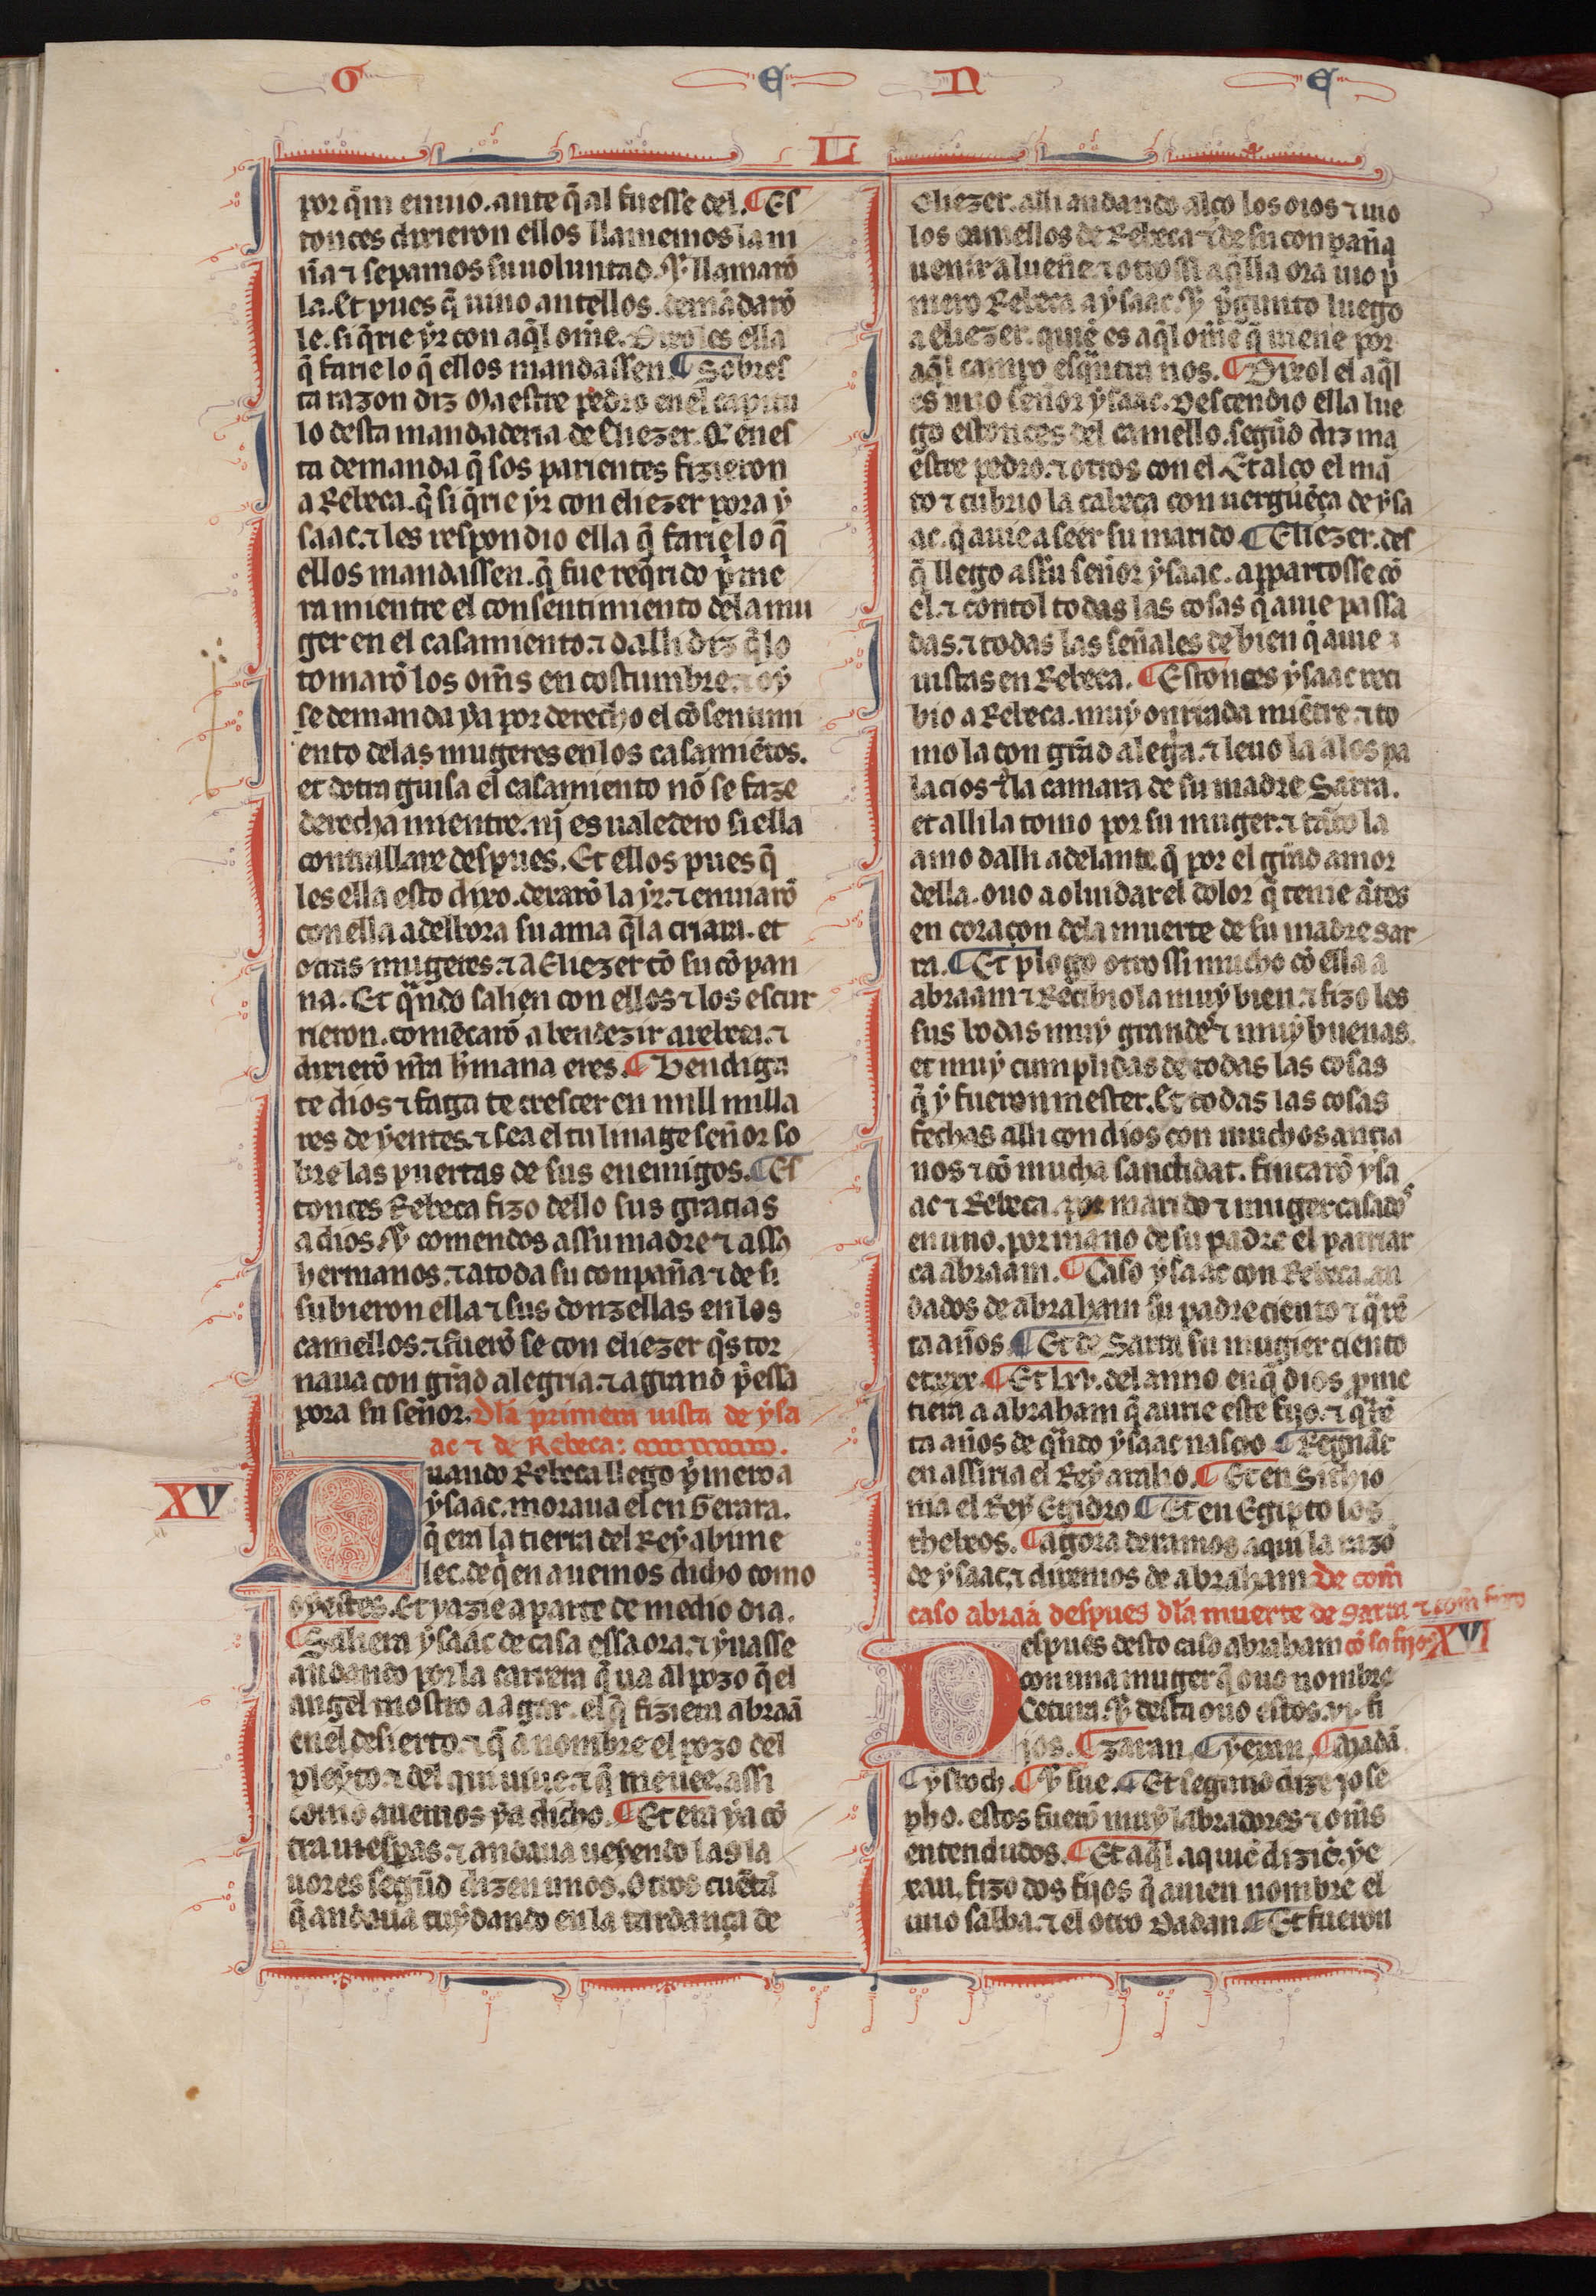 G E N E
L
por q̃m enuio. ante q̃ al fuesse del. ¶ Es
tonces dixieron ellos llamemos la ni
ña ⁊ sepamos su uoluntad. ⁊ llamarõ
la. Et pues q̃ uino antellos. demãdarõ
le. si q̃rie yr con aq̃l ome. Dixo les ella
q̃ farie lo q̃ ellos mandassen. ¶ Sobres
ta razon diz Maestre pedro en el capitu
lo desta mandaderia de Eliezer. Q̃ en es
ta demanda q̃ sos parientes fizieron
a Rebeca. q̃ si q̃rie yr con eliezer pora y
saac. ⁊ les respondio ella q̃ farie lo q̃
ellos mandassen. q̃ fue req̃rido p̃me
ra mientre el consentimiento dela mu
ger en el casamiento. ⁊ dalli diz q̃ lo
tomarõ los om̃s en costumbre. ⁊ oy
se demanda ya por derecho el cõsentimi
ento delas mugeres en los casamiẽtos.
et dotra guisa el casamiento nõ se faze
derecha mientre. nj es ualedero si ella
contrallare despues. Et ellos pues q̃
les ella esto dixo. dexarõ la yr. ⁊ enuiarõ
con ella a dellbora su ama q̃ la criara. et
otras mugeres. ⁊ a Eliezer cõ su cõpan
na. Et q̃ndo salien con ellos ⁊ los escur
rieron. comẽcarõ a bendezir a rebeca. ⁊
dixierõ nr̃a h̃mana eres. ¶ Bendiga
te dios ⁊ faga te crescer en mill milla
res de yentes. ⁊ sea el tu linage señor so
bre las puertas de sus enemigos. ¶ Es
tonces Rebeca fizo dello sus gracias
a dios. ⁊ comendos assu madre ⁊ asso
hermanos. ⁊ atoda su conpaña ⁊ de si
subieron ella ⁊ sus donzellas en los
camellos. ⁊ fuerõ se con eliezer q̃ s tor
naua con grãd alegria. ⁊ a grand p̃essa
pora su señor. Dla primera uista de ysa
ac ⁊ de Rebeca:
XV
Quando Rebeca llego p̃mero a
ysaac. moraua el en Gerara.
q̃ era la tierra del Rey abime
lec. de q̃en auemos dicho como
oyestes. Et yazie a parte de medio dia.
¶ Saliera ysaac de casa essa ora. ⁊ yuasse
andando por la carrera q̃ ua al pozo q̃ el
angel mostro a agar. el q̃ fiziera abraã
en el desierto. ⁊ q̃ a nombre el pozo del
pleyto. ⁊ del qui uiue. ⁊ q̃ me uee. assi
como auemos ya dicho. ¶ Et era ya cõ
tra uiespas. ⁊ andaua ueyendo las la
uores segũd dizen unos. Otros cuẽtã
q̃ andaua cuydando en la tardança de
Eliezer. alli andando alço los oios ⁊ uio
los camellos de Rebeca ⁊ de su conpaña
uenir alueñe. ⁊ otrossi aq̃lla ora uio p̃
mero Rebeca a ysaac. ⁊ p̃gunto luego
a eliezer. quiẽ es aq̃l ome q̃ uiene por
aq̃l campo esq̃ntra nos. ¶ Dixol el aq̃l
es mio señor ysaac. Descendio ella lue
go estonces del camello. segũd diz ma
estre pedro. ⁊ otros con el. Et alço el mã
to ⁊ cubrio la cabeça con uergũeça de ysa
ac. q̃ auie a seer su marido. ¶ Eliezer. des
q̃ llego assu señor ysaac. appartosse cõ
el. ⁊ contol todas las cosas q̃ auie passa
das. ⁊ todas las señales de bien q̃ auie
uistas en Rebeca. ¶ Estonces ysaac reci
bio a Rebeca. muy onrrada miẽtre. ⁊ to
mo la con grãd alegⁱa. ⁊ leuo la a los pa
lacios ⁊ a la camara de su madre Sarra.
et alli la tomo por su muger. ⁊ tãto la
amo dalli adelante q̃ por el grãd amor
della. ouo a oluidar el dolor q̃ tenie ãtes
en coraçon dela muerte de su madre sar
ra. ¶ Et plogo otrossi mucho cõ ella a
abraam ⁊ Recibiola muy bien. ⁊ fizo les
sus bodas muy grandes ⁊ muy buenas.
et muy cumplidas de todas las cosas
q̃ y fueron mester. Et todas las cosas
fechas alli con dios con muchos ancia
nos ⁊ cõ mucha sanctidat. fincarõ ysa
ac ⁊ Rebeca. por marido ⁊ muger casados
en uno. por mano de su padre el patriar
ca abraam. ¶ Caso ysaac con Rebeca. an
dados de abraham su padre ciento ⁊ q̃rẽ
ta años. ¶ Et de Sarra su mugier ciento
et xxx. ¶ Et lxv. del anno en q̃ dios p̃me
tiera a abraham q̃ aurie este fijo. ⁊ q̃rẽ
ta años de q̃ndo ysaac nascio. ¶ Regnãte
en assiria el Rey aralio. ¶ Et en Sithio
nia el Rey Egidro ¶ Et en Egipto los
thebeos. ¶ agora dexamos aqui la razõ
de ysaac. ⁊ diremos de abraham. De com̃
caso abraã despues dla muerte de sarra ⁊ com̃ fizo
XVI
Despues desto caso abraham cõ so fijos
con una muger q̃ ouo nombre
Cetura. ⁊ desta ouo estos. vj. fi
jos. ¶ zaran. ¶ yeran. ¶ Madã.
¶ ysboch. ¶ ⁊ sue. ¶ Et segund dize jose
pho. estos fuerõ muy labradores ⁊ om̃s
entendudos. ¶ Et aq̃l. a quiẽ dizíẽ. ye
ran. fizo dos fijos q̃ auien nombre el
uno salba. ⁊ el otro Dadan. ¶ Et fueron